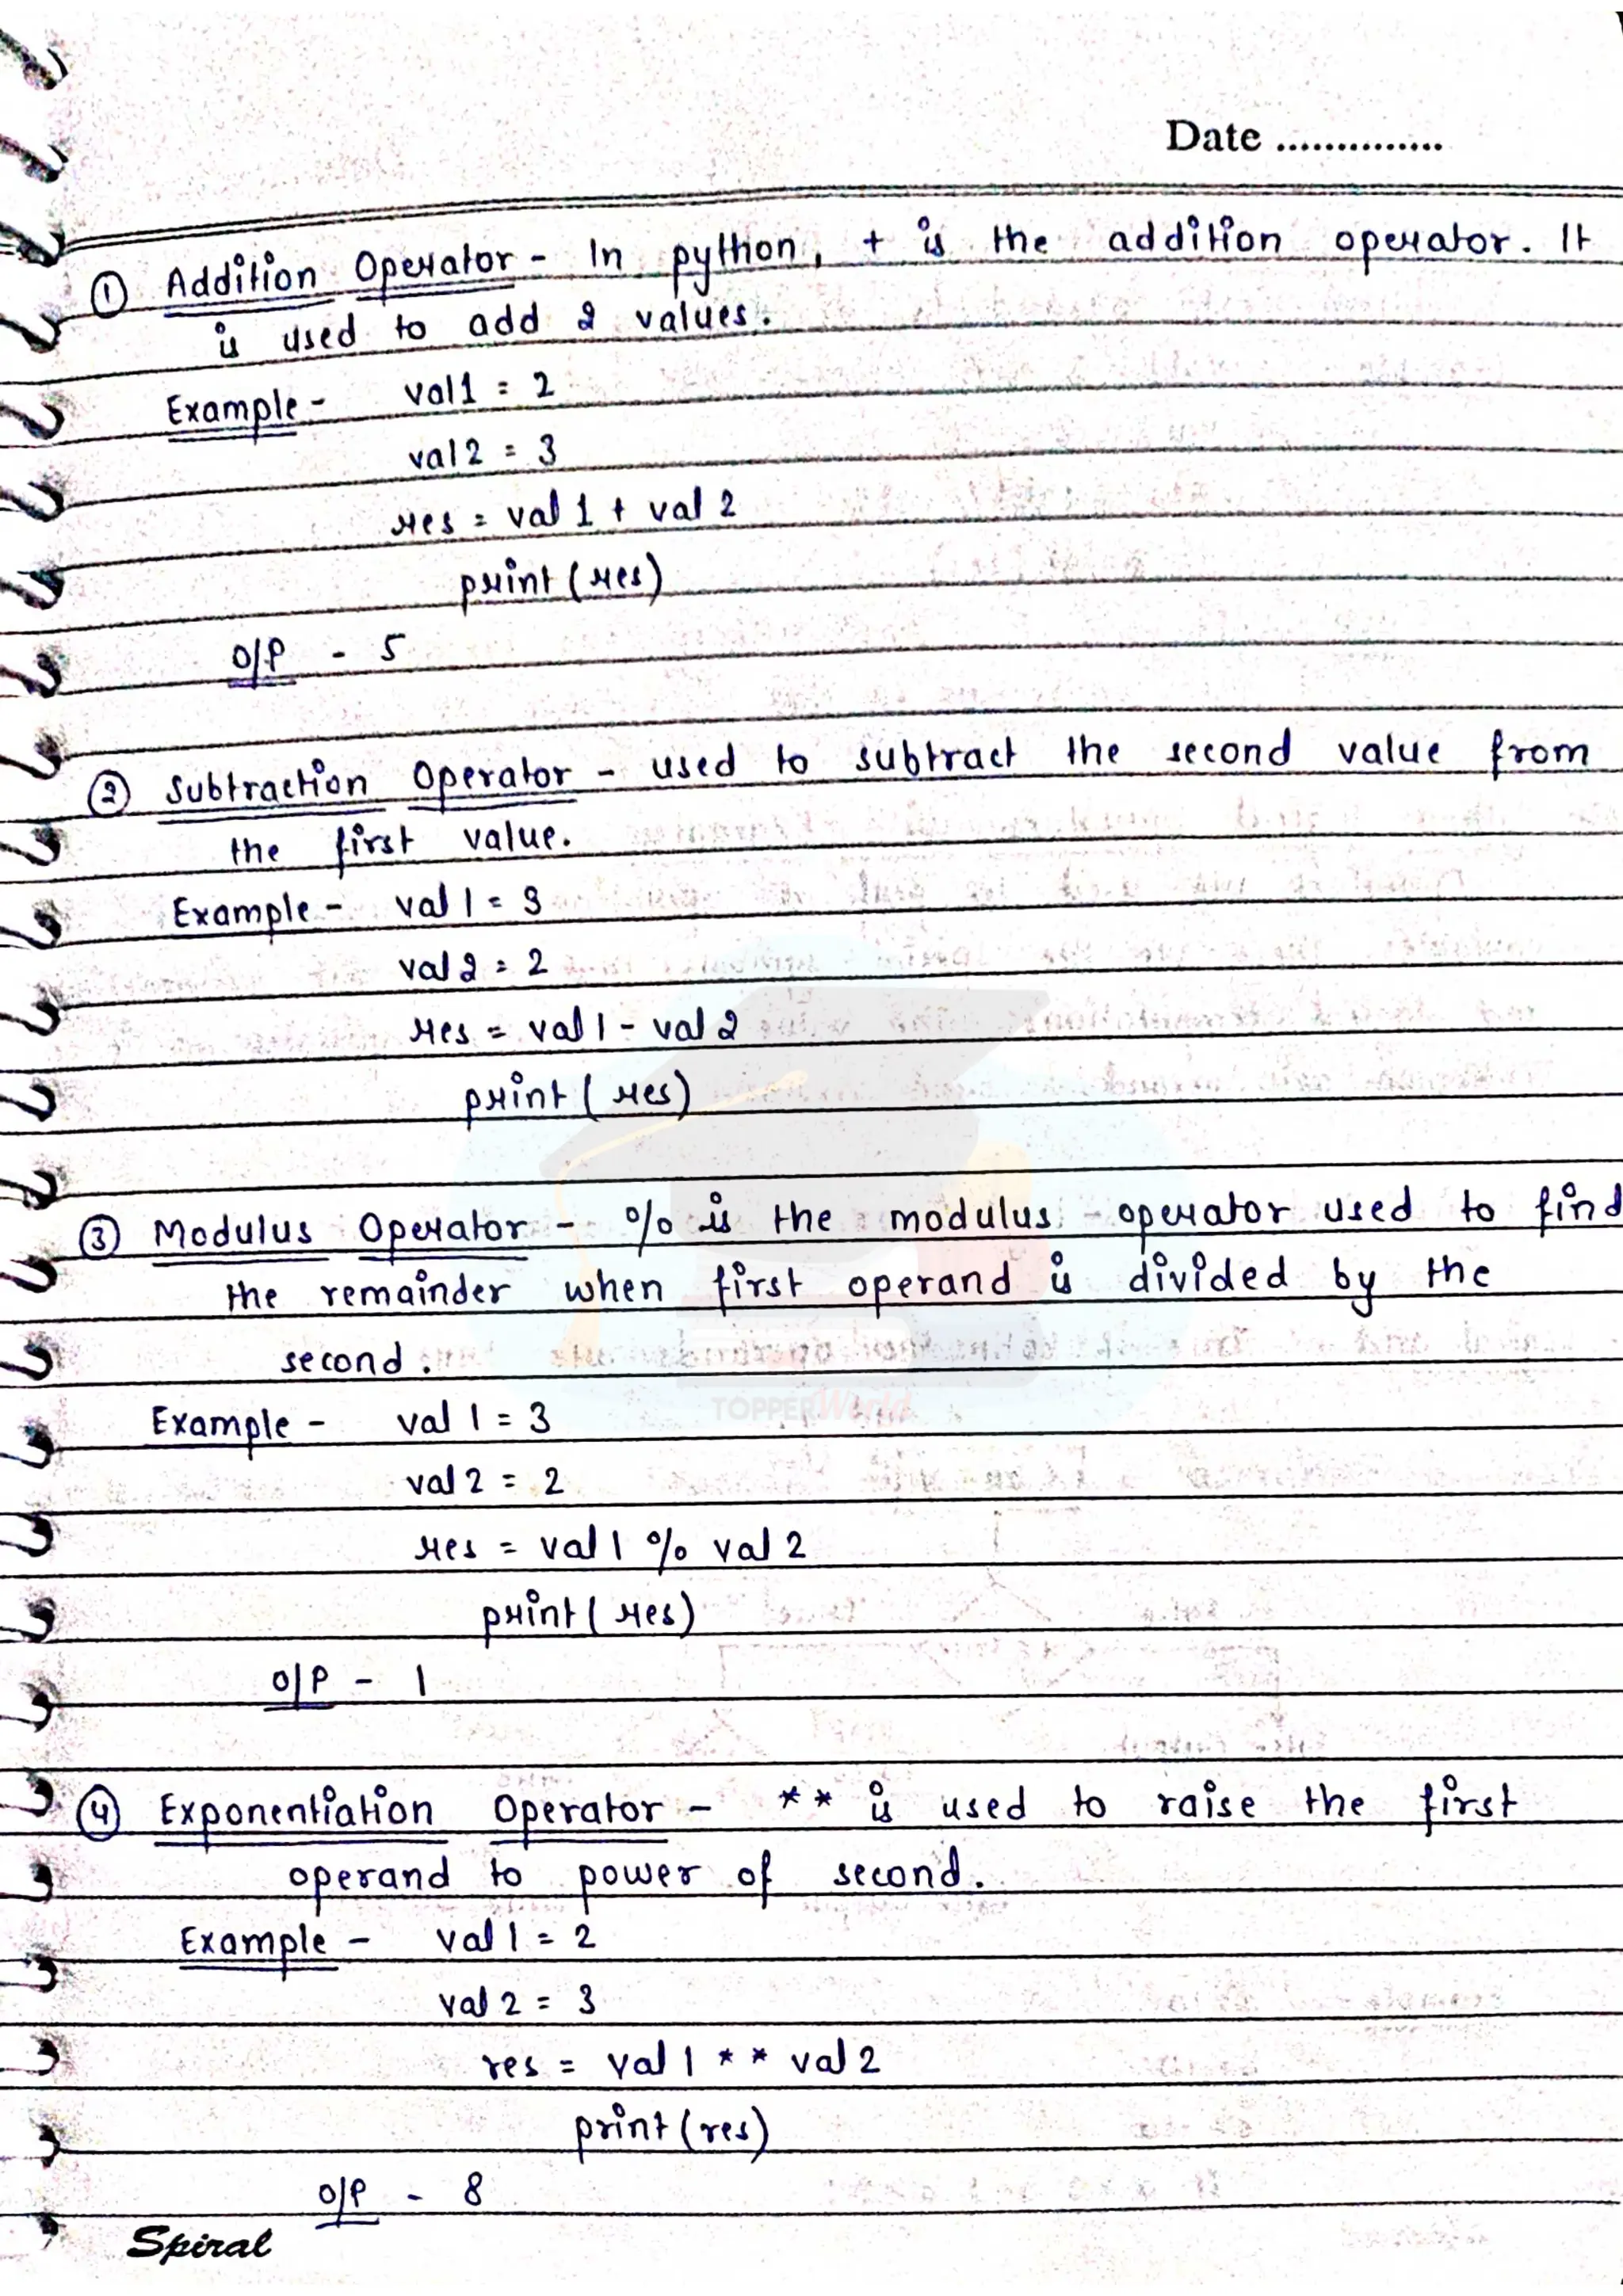 Date ...............
① Addition Operator - In python, + is the addition operator. It
is used to add 2 values.
Example - val1 = 2
val2 = 3
res = val 1 + val 2
print (res)
O/P - 5
② Subtraction Operator - used to subtract the second value from
the first value.
Example - val 1 = 3
val 2 = 2
res = val 1 - val 2
print ( res)
③ Modulus Operator - % is the modulus operator used to find
the remainder when first operand is divided by the
second.
TOPPERWorld
Example - val 1 = 3
val 2 = 2
res = val 1 % val 2
print ( res)
O/P - 1
④ Exponentiation Operator - ** is used to raise the first
operand to power of second.
Example - val 1 = 2
val 2 = 3
res = val 1 ** val 2
print (res)
O/P - 8
Spiral